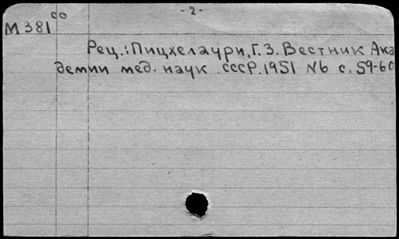 со
- 2 -
М 381
Рец.: Пицхелаури, Г. З. Вестник Ака
демии мед. наук СССР. 1951 №6 с. 59-60